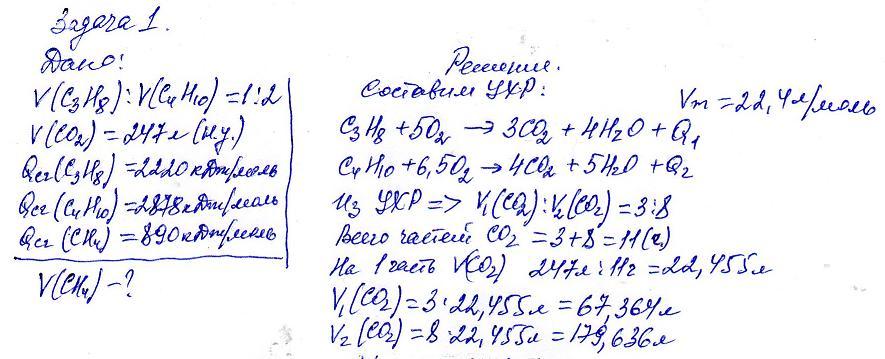 Задача 1.
Дано:
V(C3H8):V(C4H10)=1:2
V(CO2)=247л(н.у.)
Qсг(C3H8)=2220кДж/моль
Qсг(C4H10)=2878кДж/моль
Qсг(CH4)=890кДж/моль
V(CH4)-?
Решение.
Составим УХР:
Vm=22,4л/моль
C3H8+5O2→3CO2+4H2O+Q1
C4H10+6,5O2→4CO2+5H2O+Q2
Из УХР=>V1(CO2):V2(CO2)=3:8
Всего частей CO2=3+8=11(ч)
На 1 часть V(CO2) 247л:11ч=22,455л
V1(CO2)=3·22,455л=67,364л
V2(CO2)=8·22,455л=179,636л